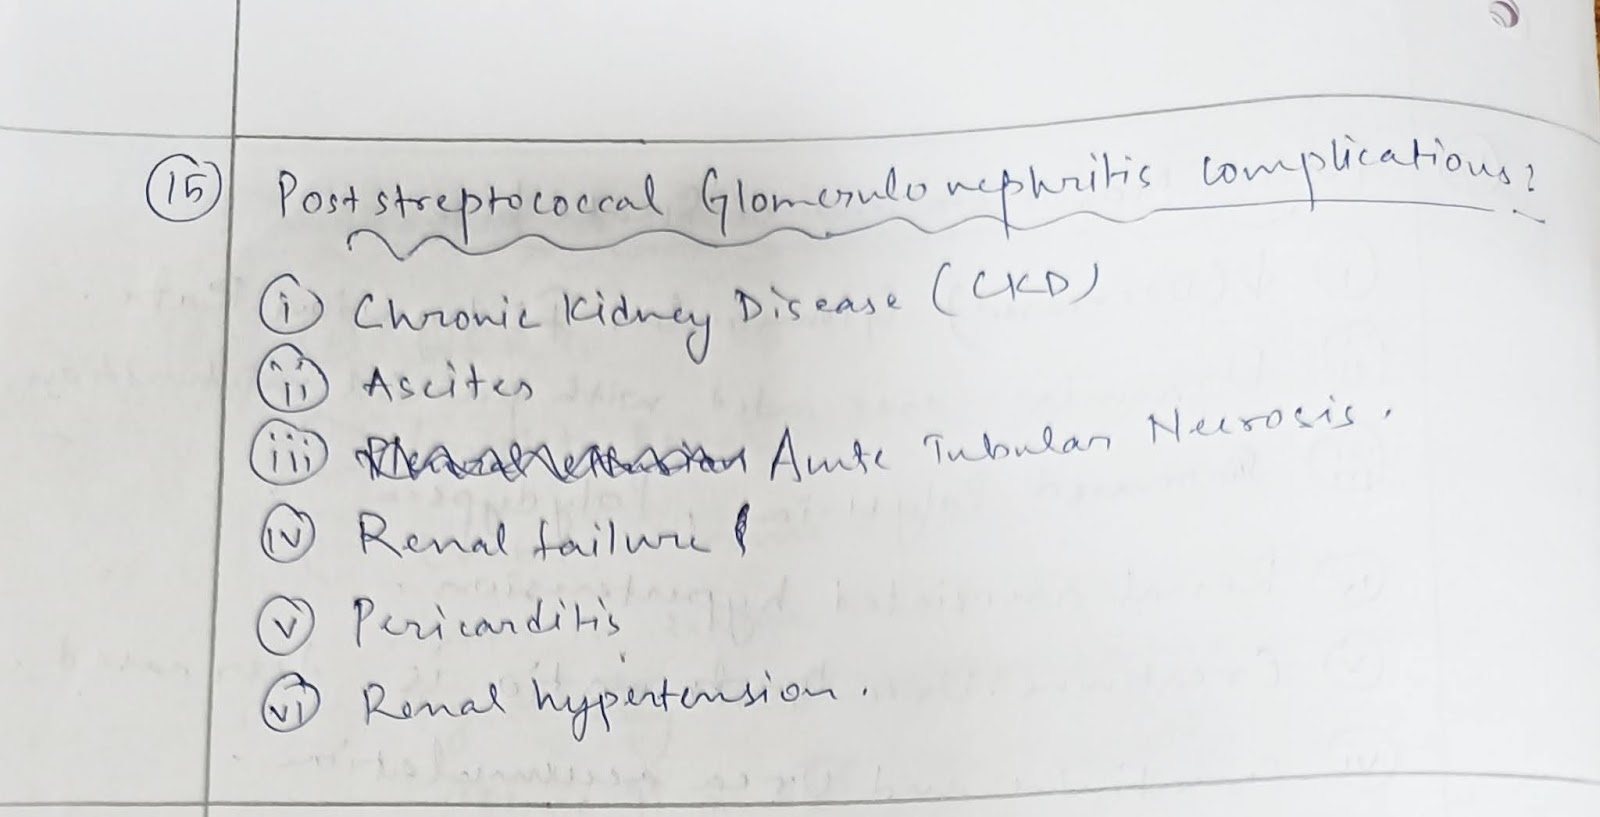 15 Post streptococcal Glomerulonephritis complications?
i Chronic Kidney Disease (CKD)
ii Ascites
iii Acute Tubular Necrosis.
iv Renal failure
v Pericarditis
vi Renal hypertension.